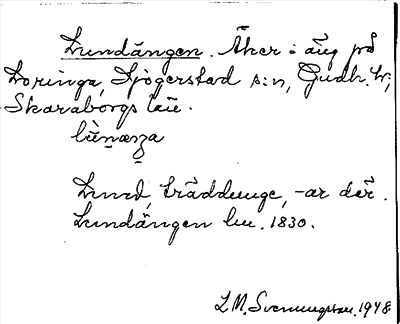 Lundängen. Åker o äng på
Loringa, Sjogerstad s:n, Gudh. hr,
Skaraborgs län.
lùnæŋa
Lund, träddunge, -ar där.
Lundängen bev. 1830.
L M. Svenungsson. 1948